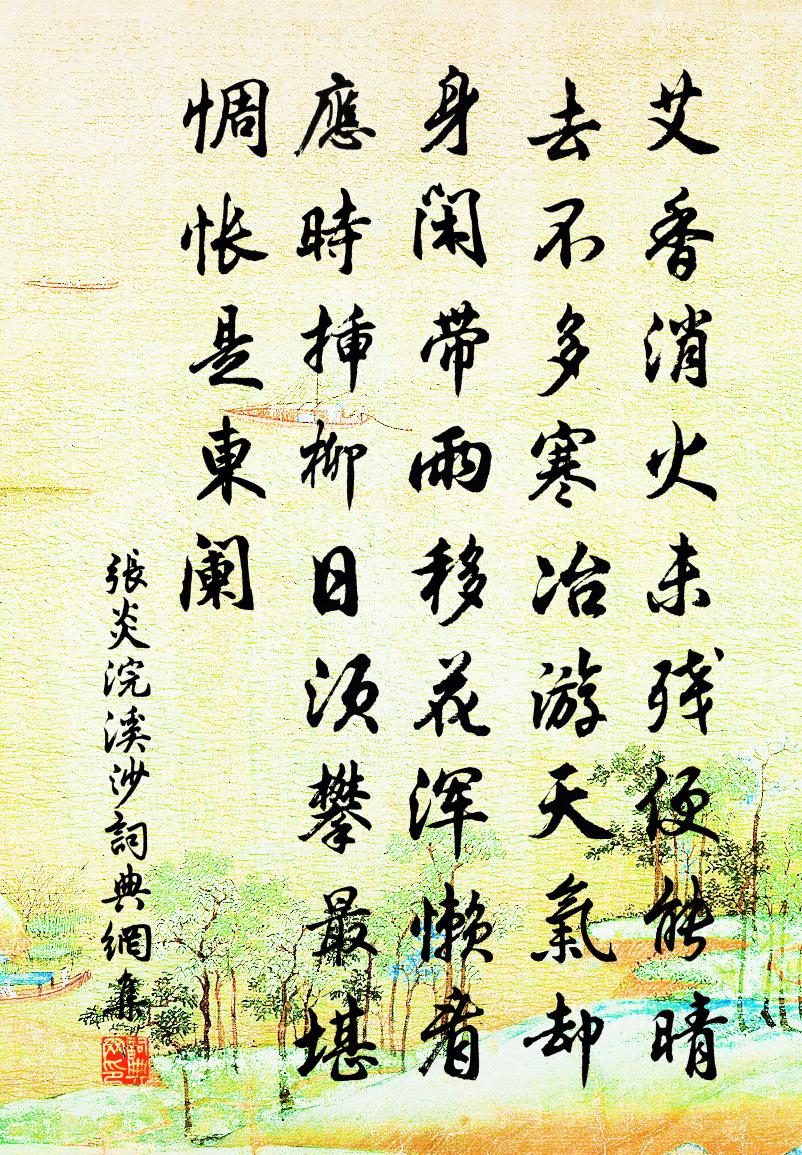 艾香消火未残便能晴
去不多寒冶游天氣却
身闲带雨移花浑懒看
應時挿柳日须攀最堪
惆怅是東阑
張炎浣溪沙詞典網集